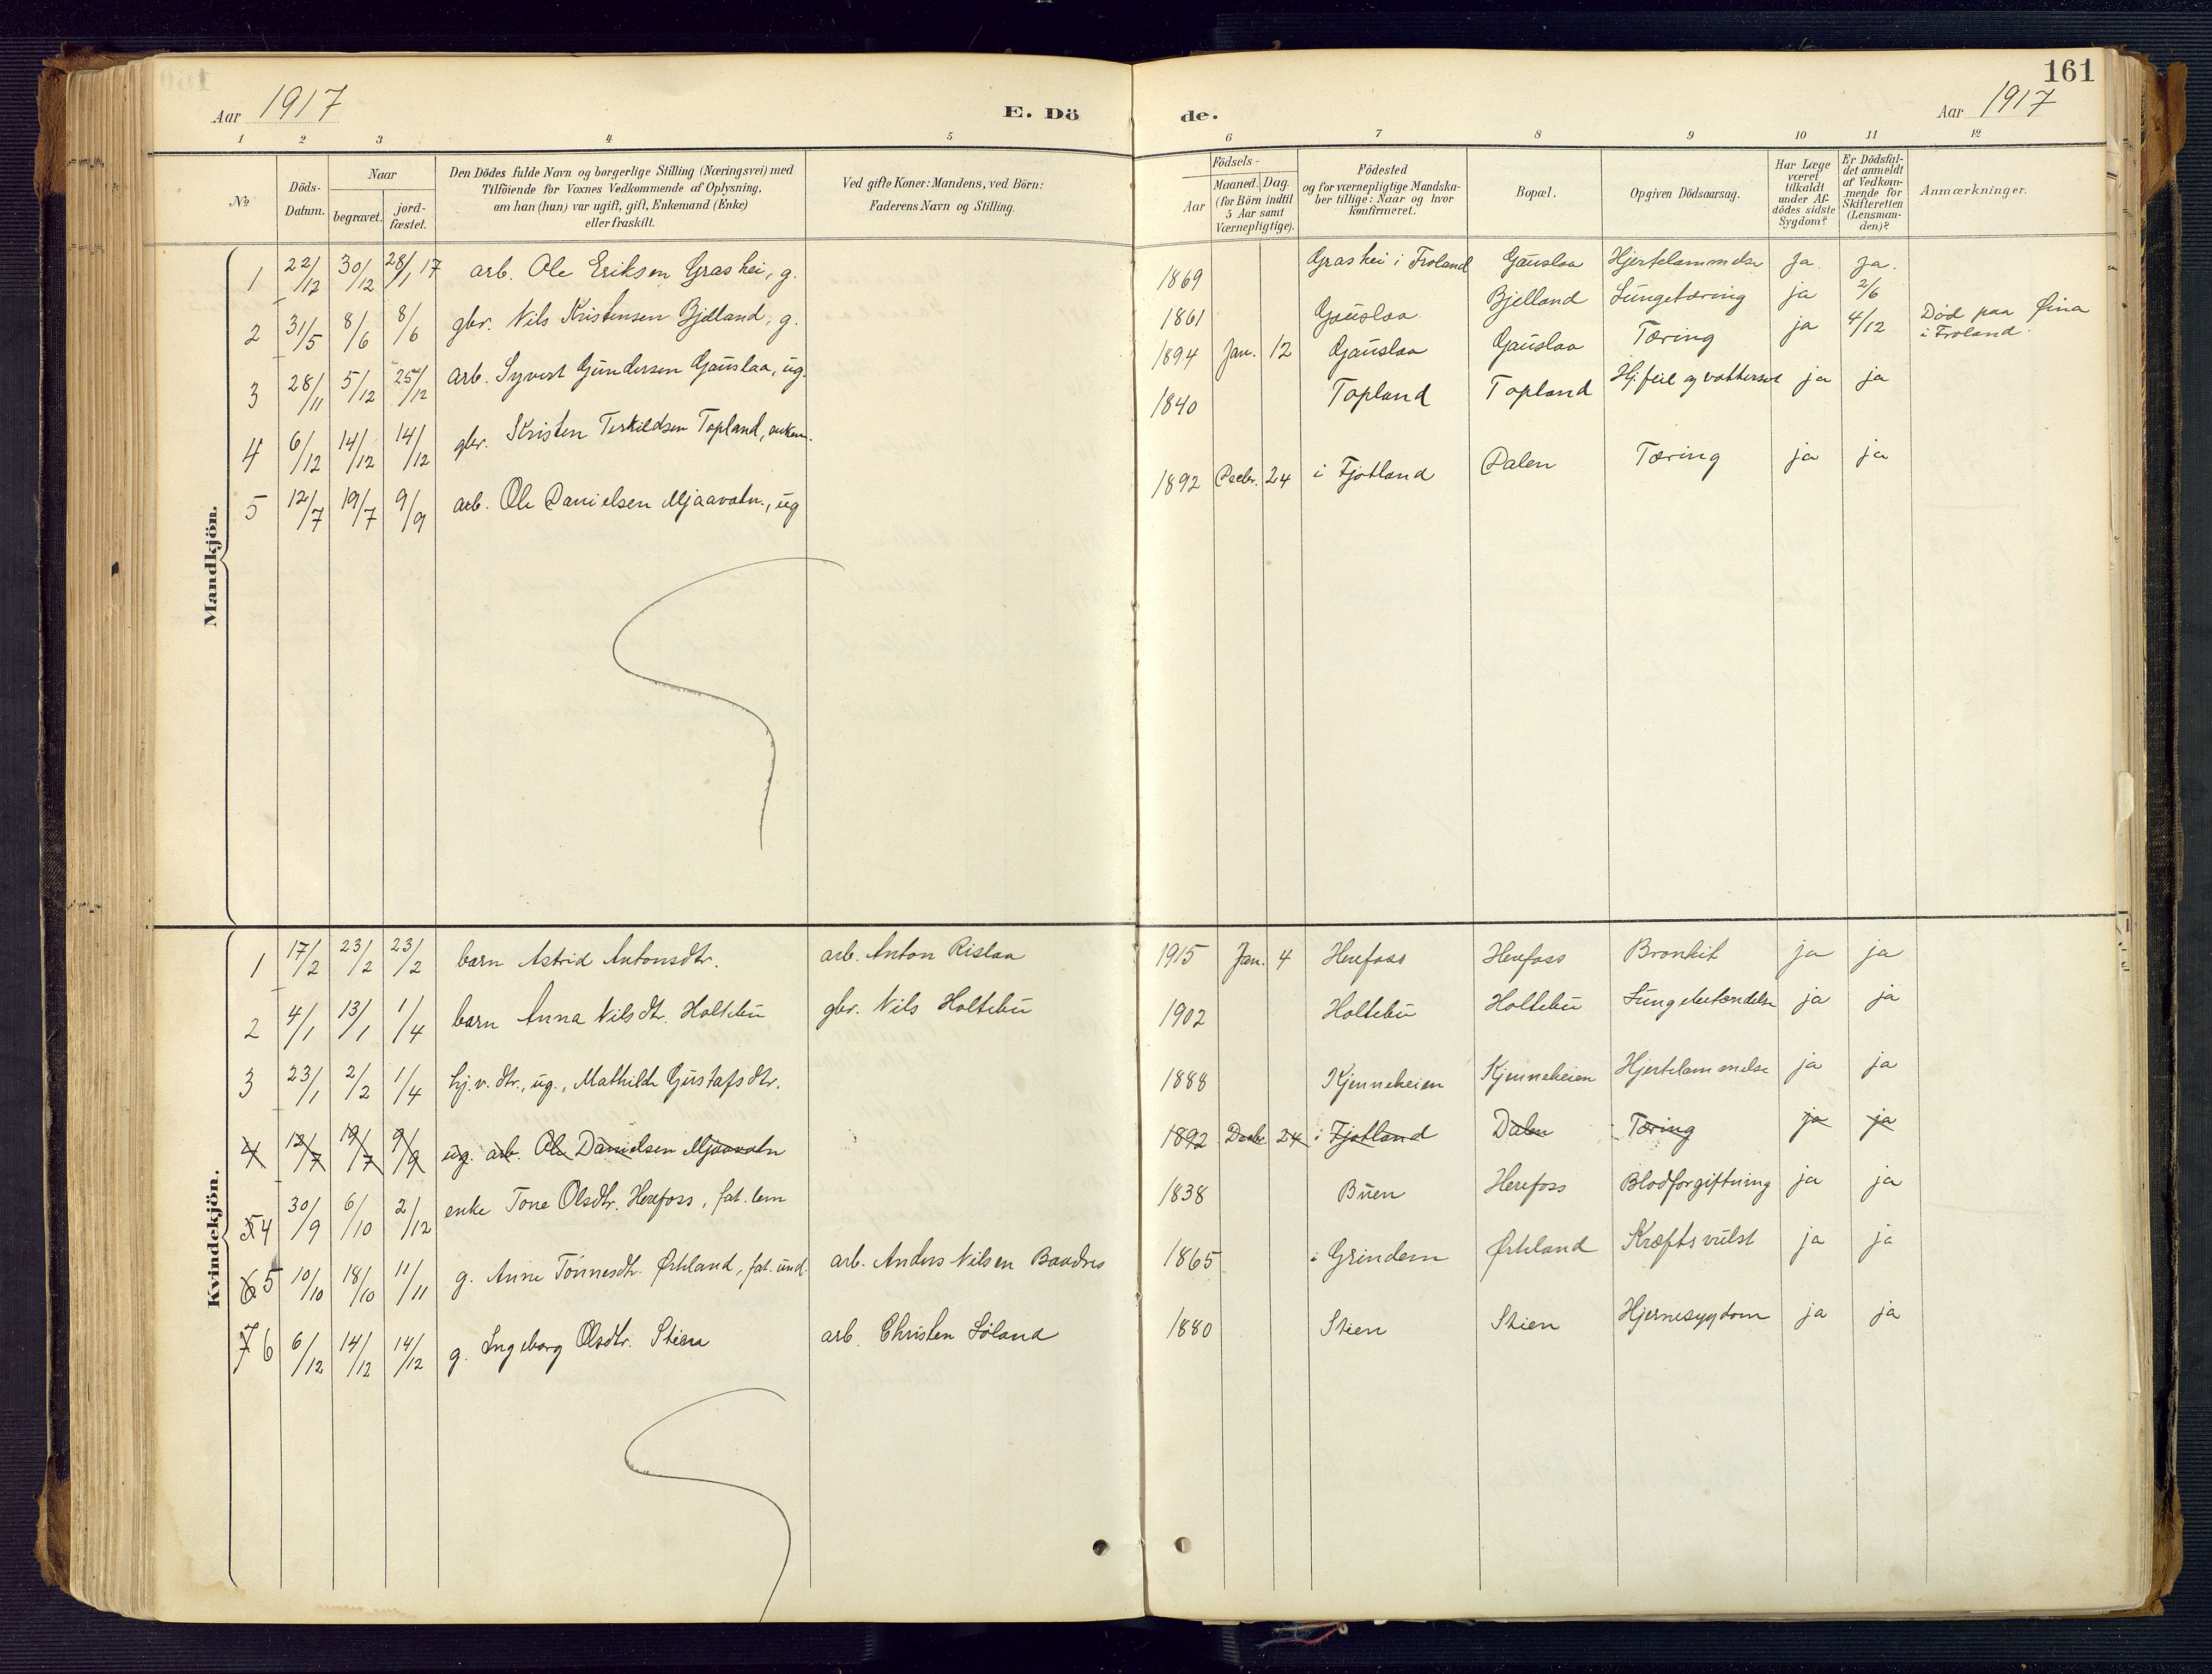 161
Aar 1917
E. Dö
de.
Aar 1917
1 2 3 4 5 6 7 8 9 10 11 12
No
Döds-Datum.
Naar begravet. jordfæstet.
Den Dödes fulde Navn og borgerlige Stilling (Næringsvei) med Tilföiende for Voxnes Vedkommende af Oplysning, om han (hun) var ugift, gift, Enkemand (Enke) eller fraskilt.
Ved gifte Koner: Mandens, ved Börn: Faderens Navn og Stilling.
Födsels-
Aar
Maaned. Dag. (for Börn indtil 5 Aar samt Værnepligtige).
Födested og for værnepligtige Mandskaber tillige: Naar og hvor Konfirmeret.
Bopæl.
Opgiven Dödsaarsag.
Har Læge været tilkaldt under Afdödes sidste Sygdom?
Er Dödsfaldet anmeldt af Vedkommende for Skifteretten (Lensmanden)?
Anmærkninger.
Mandkjön.
1 22/12 30/12 28/1 17 arb. Ole Eriksen Grashei, g. 1869 Grashei i Froland Gauslaa Hjertelammelse Ja. ja.
2 31/5 8/6 8/6 gbr. Nils Kristensen Bjelland, g. 1861 Gauslaa Bjelland Lungetæring ja 2/6
3 28/11 5/12 25/12 arb. Syvert Gundersen Gauslaa, ug. 1894 Jan. 12 Gauslaa Gauslaa Tæring ja 4/12 Död paa Øina i Froland.
4 6/12 14/12 14/12 gbr. Kristen Terkildsen Topland, enkem. 1840 Topland Topland Hj.feil og vattersot ja ja
5 12/7 19/7 9/9 arb. Ole Danielsen Mjaavatn., ug 1892 Decbr. 24 i Fjotland Dalen Tæring ja ja
Kvindekjön.
1 17/2 23/2 23/2 barn Astrid Antonsdtr. arb. Anton Rislaa 1915 Jan. 4 Herefoss Herefoss Bronkit ja ja
2 4/1 13/1 1/4 barn Anna Nilsdtr. Holtebu gbr. Nils Holtebu 1902 Holtebu Holtebu Lungebetændelse ja ja
3 23/1 2/2 1/4 hj.v. dtr., ug., Mathilde Gustafsdtr. 1888 Kjenneheien Kjenneheien Hjertelammelse ja ja
4 12/7 19/7 9/9 ug. arb. Ole Danielsen Mjaavatn 1892 Decbr 24 i Fjotland Dalen Tæring ja ja
5 4 30/9 6/10 2/12 enke Tone Olsdtr. Herefoss, fat. lem 1838 Buen Herefoss Blodforgiftning ja ja
6 5 10/10 18/10 11/11 g. Anne Tönnesdtr. Ørteland, fat. und. arb. Anders Nilsen Baadnes 1865 i Grindem Ørteland Kræftsvulst ja ja
7 6 6/12 14/12 14/12 g. Ingeborg Olsdtr. Stien arb. Christen Löland 1880 Stien Stien Hjernesygdom ja ja